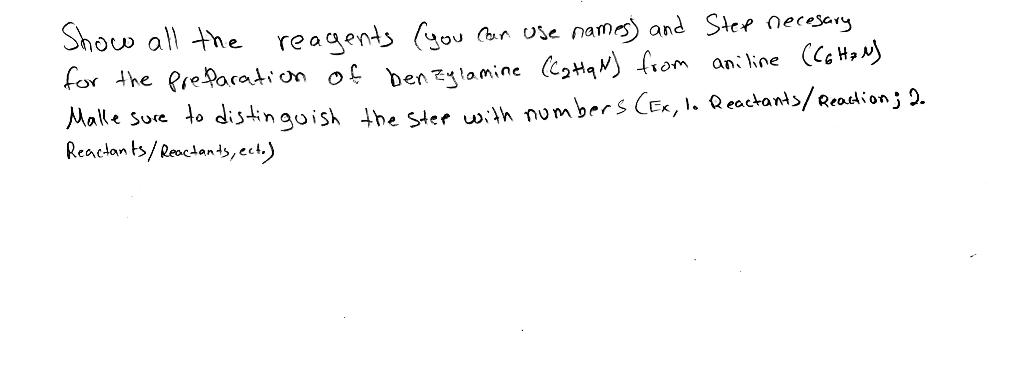 Show all the reagents (you can use names) and Step necesary
for the Preparation of benzylamine (C2H9N) from aniline (C6H7N)
Make sure to distinguish the step with numbers (Ex, 1. Reactants/Reaction; 2.
Reactants/Reactants, ect.)